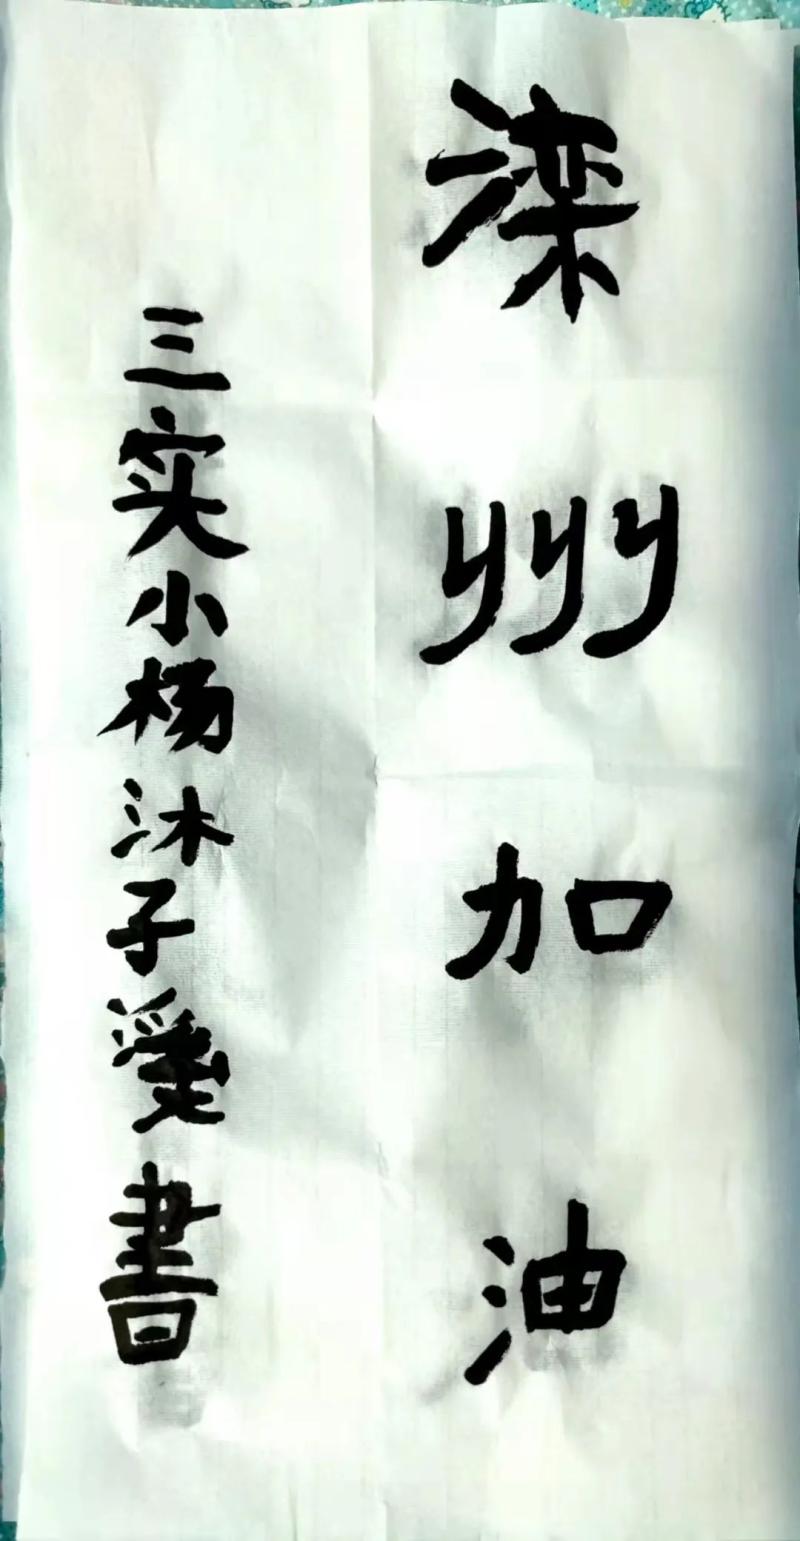 滦州加油
三实小杨沐子爱書